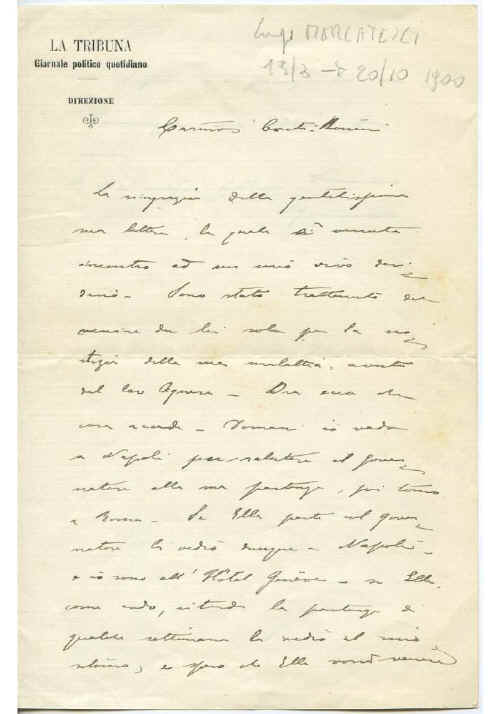 LA TRIBUNA
Giornale politico quotidiano
DIREZIONE
Luigi MERCATELLI
13/3 - 20/10 1900
Carissimo Conti-Rossini
La ringrazio della gentilissima
sua lettera, la quale è venuta
incontro ad un mio vivo desi
derio. Sono stato trattenuto dal
venire da lei solo per la no
tizia della sua malattia, avuta
del
a Napoli per salutare il gover
natore alla sua partenza, poi torno
a Roma. Se Ella parte col gover
natore la vedrò dunque a Napoli,
e io sono all'Hotel Genève - se Ella,
come credo, ritarda la partenza di
qualche settimana la vedrò al mio
ritorno, e spero che Ella vorrà venire